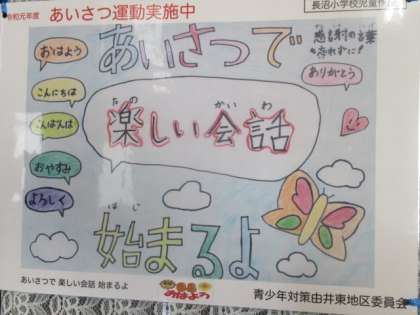 令和元年度 あいさつ運動実施中
長沼小学校児童作品
おはよう
こんにちは
こんばんは
おやすみ
よろしく
あいさつで
感謝の言葉
も忘れずに!
ありがとう
たの かいわ
楽しい会話
はじ
始まるよ
あいさつで 楽しい会話 始まるよ
おはよう
青少年対策由井東地区委員会